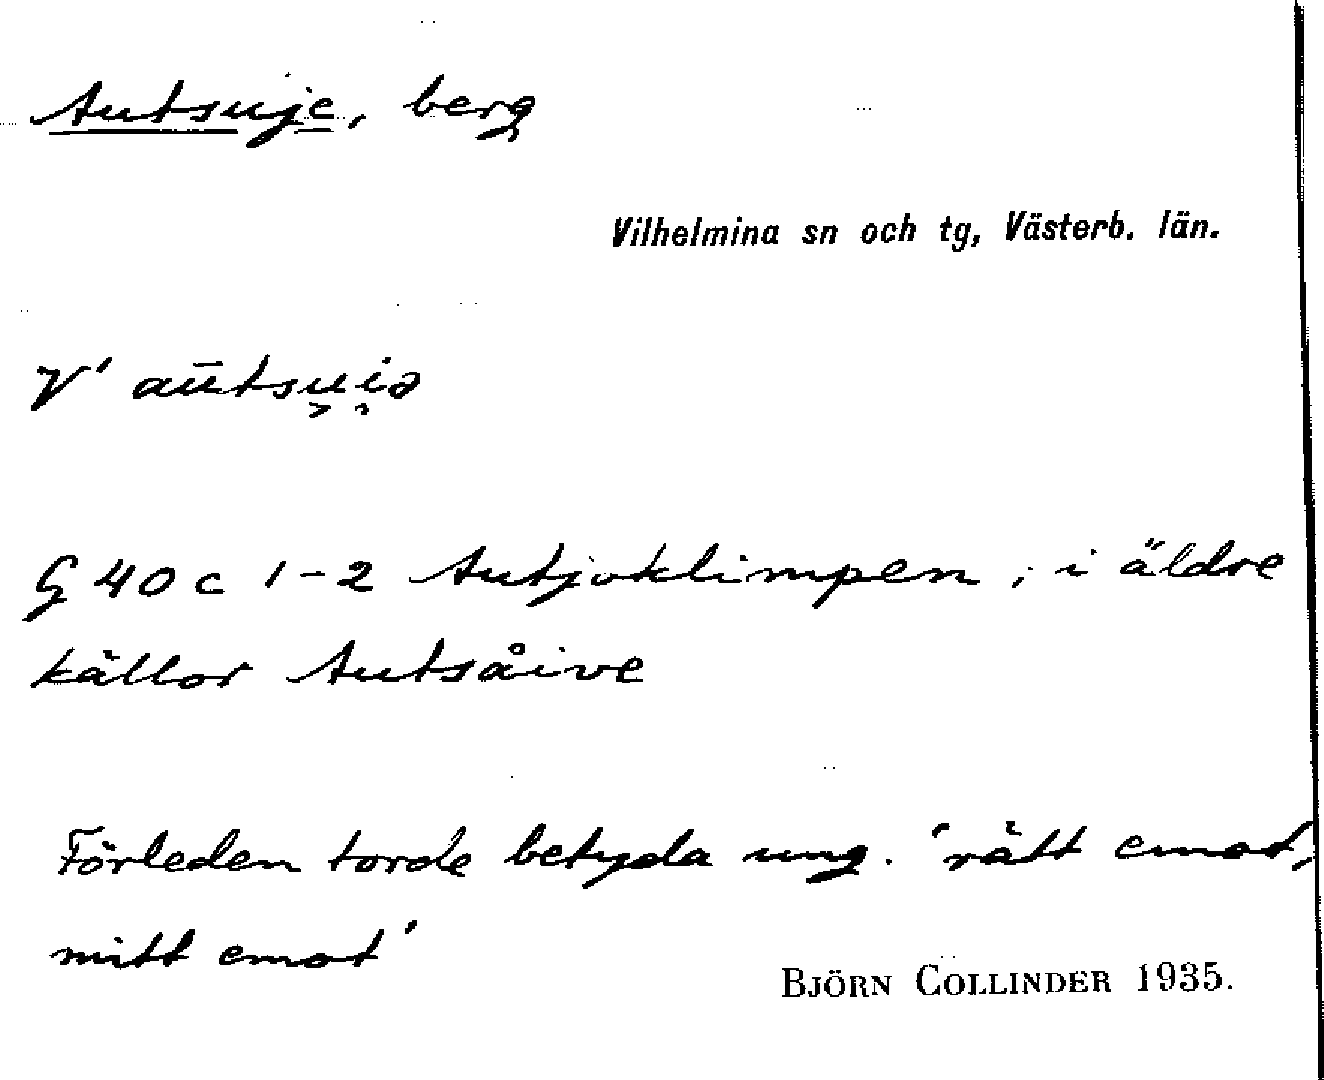 Autsuje, berg
Vilhelmina sn och tg, Västerb. län.
V' aūtsu̬i̯ə
G 40 c 1-2 Autjoklimpen; i äldre
källor Autsåive
Förleden torde betyda ung. 'rätt emot,
mitt emot'
BJÖRN COLLINDER 1935.